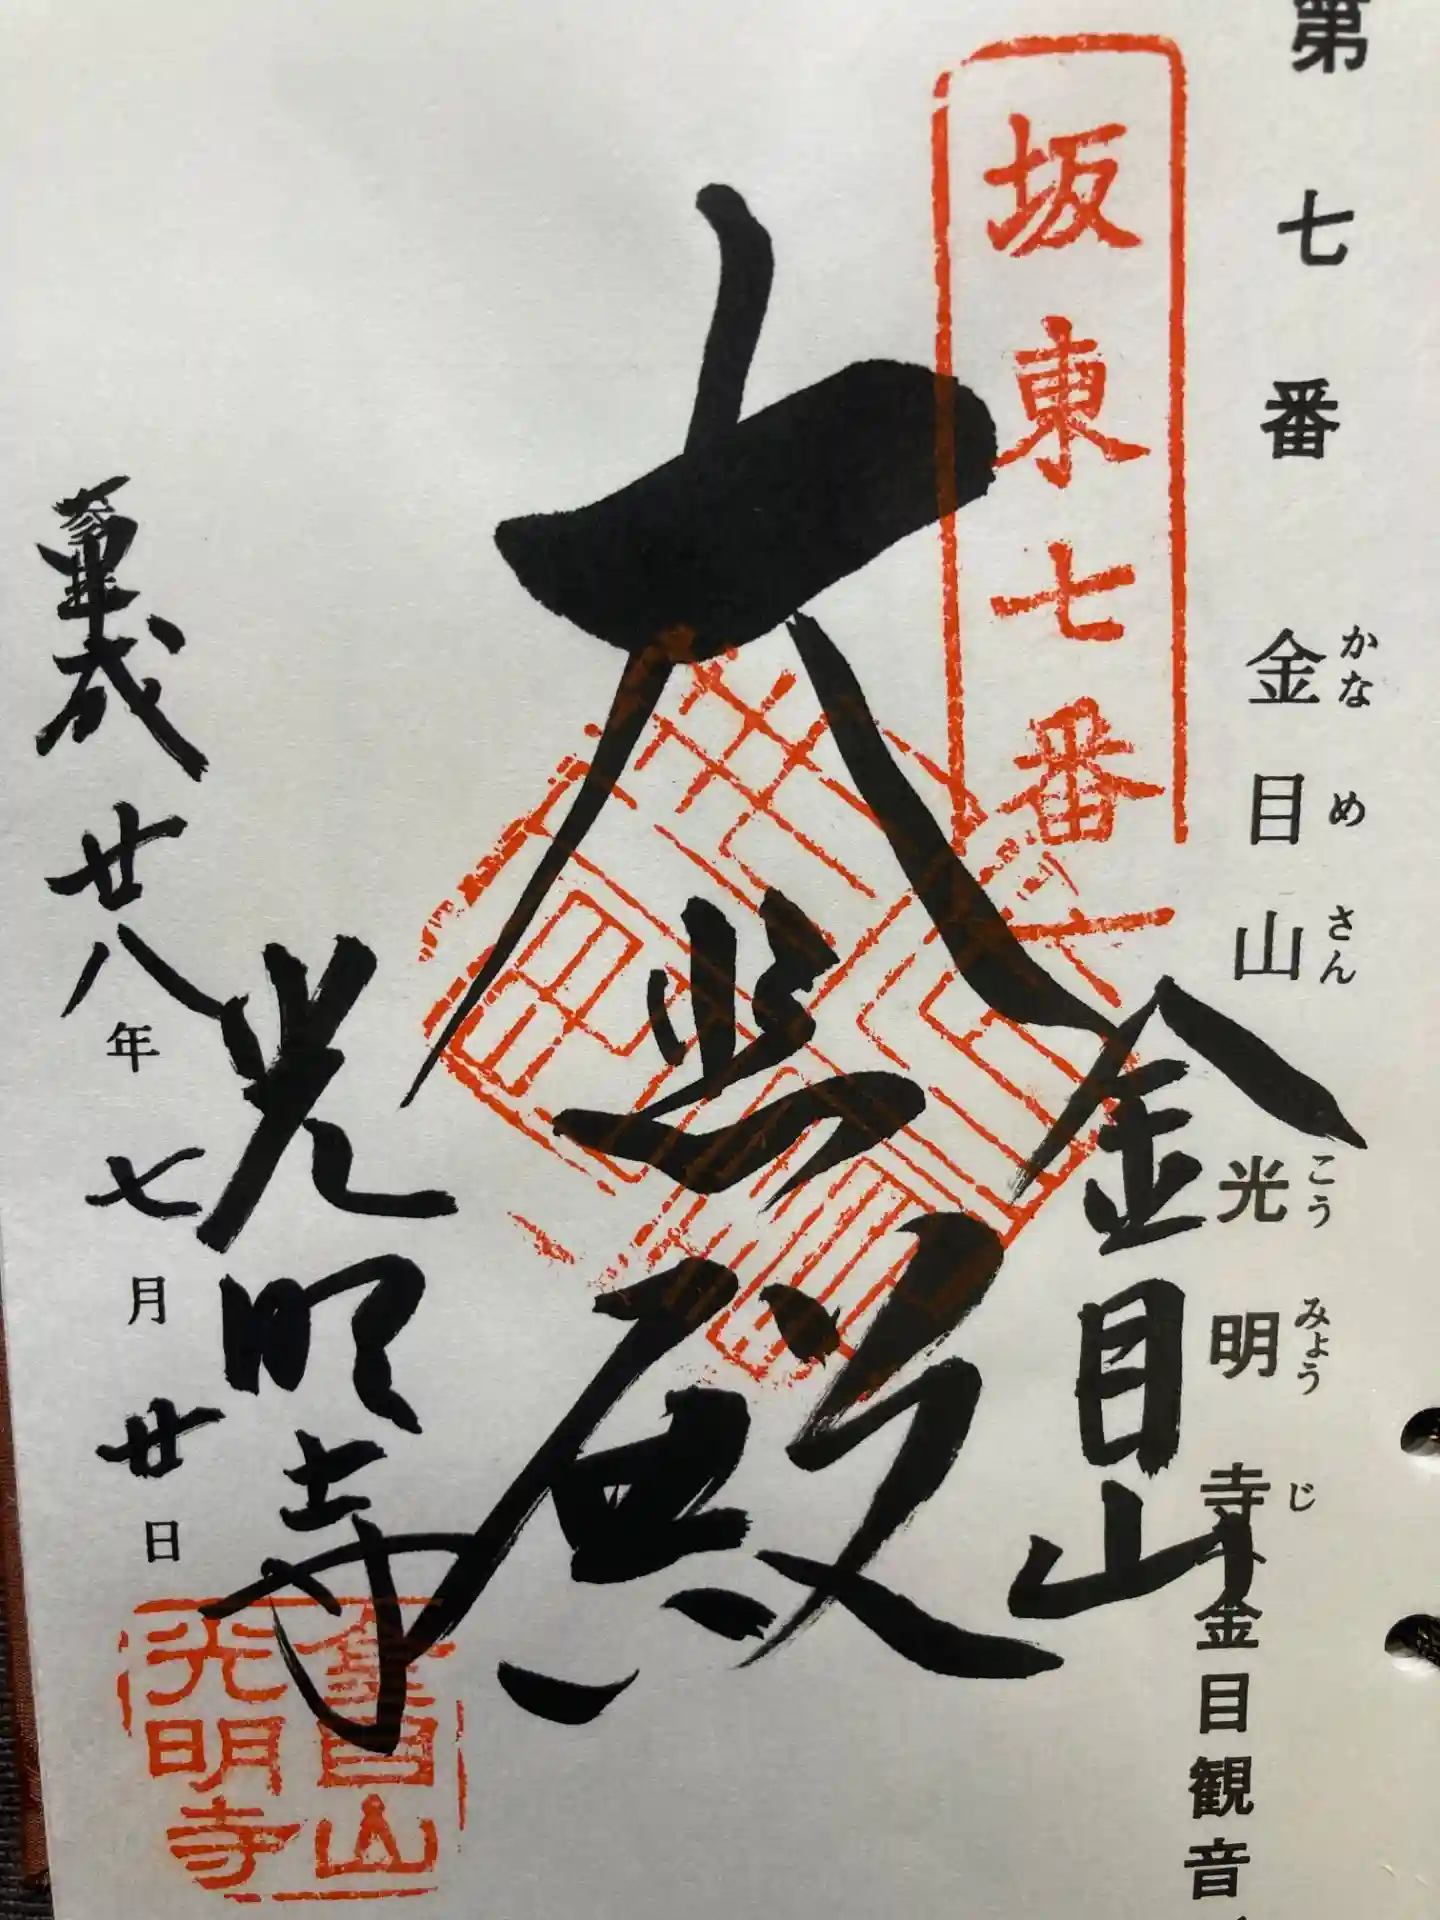 第七番 金目山 光明寺 金目観音
かなめさん こうみょうじ
坂東七番
金目山
大悲殿
光明寺
奉拝
廿八年七月廿日
金目山
光明寺